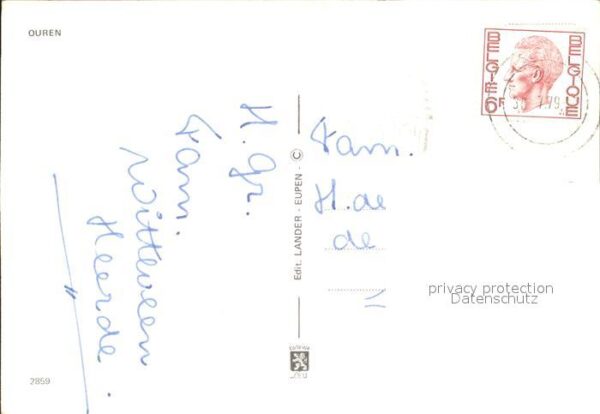 OUREN
BELGIE
BELGIQUE
6F
H. gr.
Fam.
Witteveen
Heerde.
Edit. LANDER - EUPEN - ©
Fam.
H. de
de
privacy protection
Datenschutz
2859